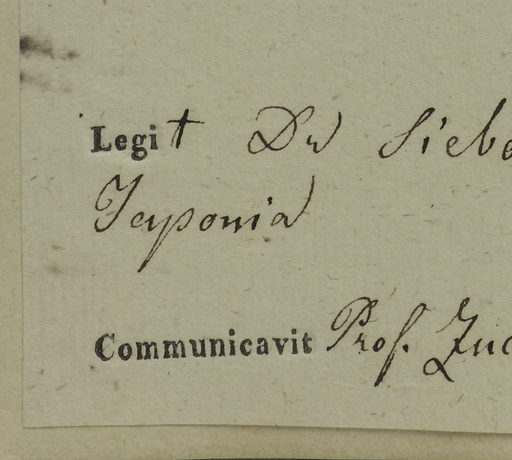 Legit Dr Siebo
Japonia
Communicavit Prof. Zuc